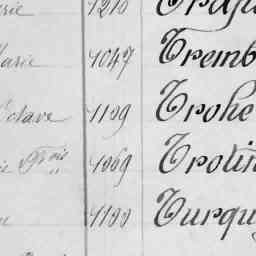 1210
Marie 1047 Tremb
Octave 1109 Trohe
Frois 1069 Trotin
1100 Turqu